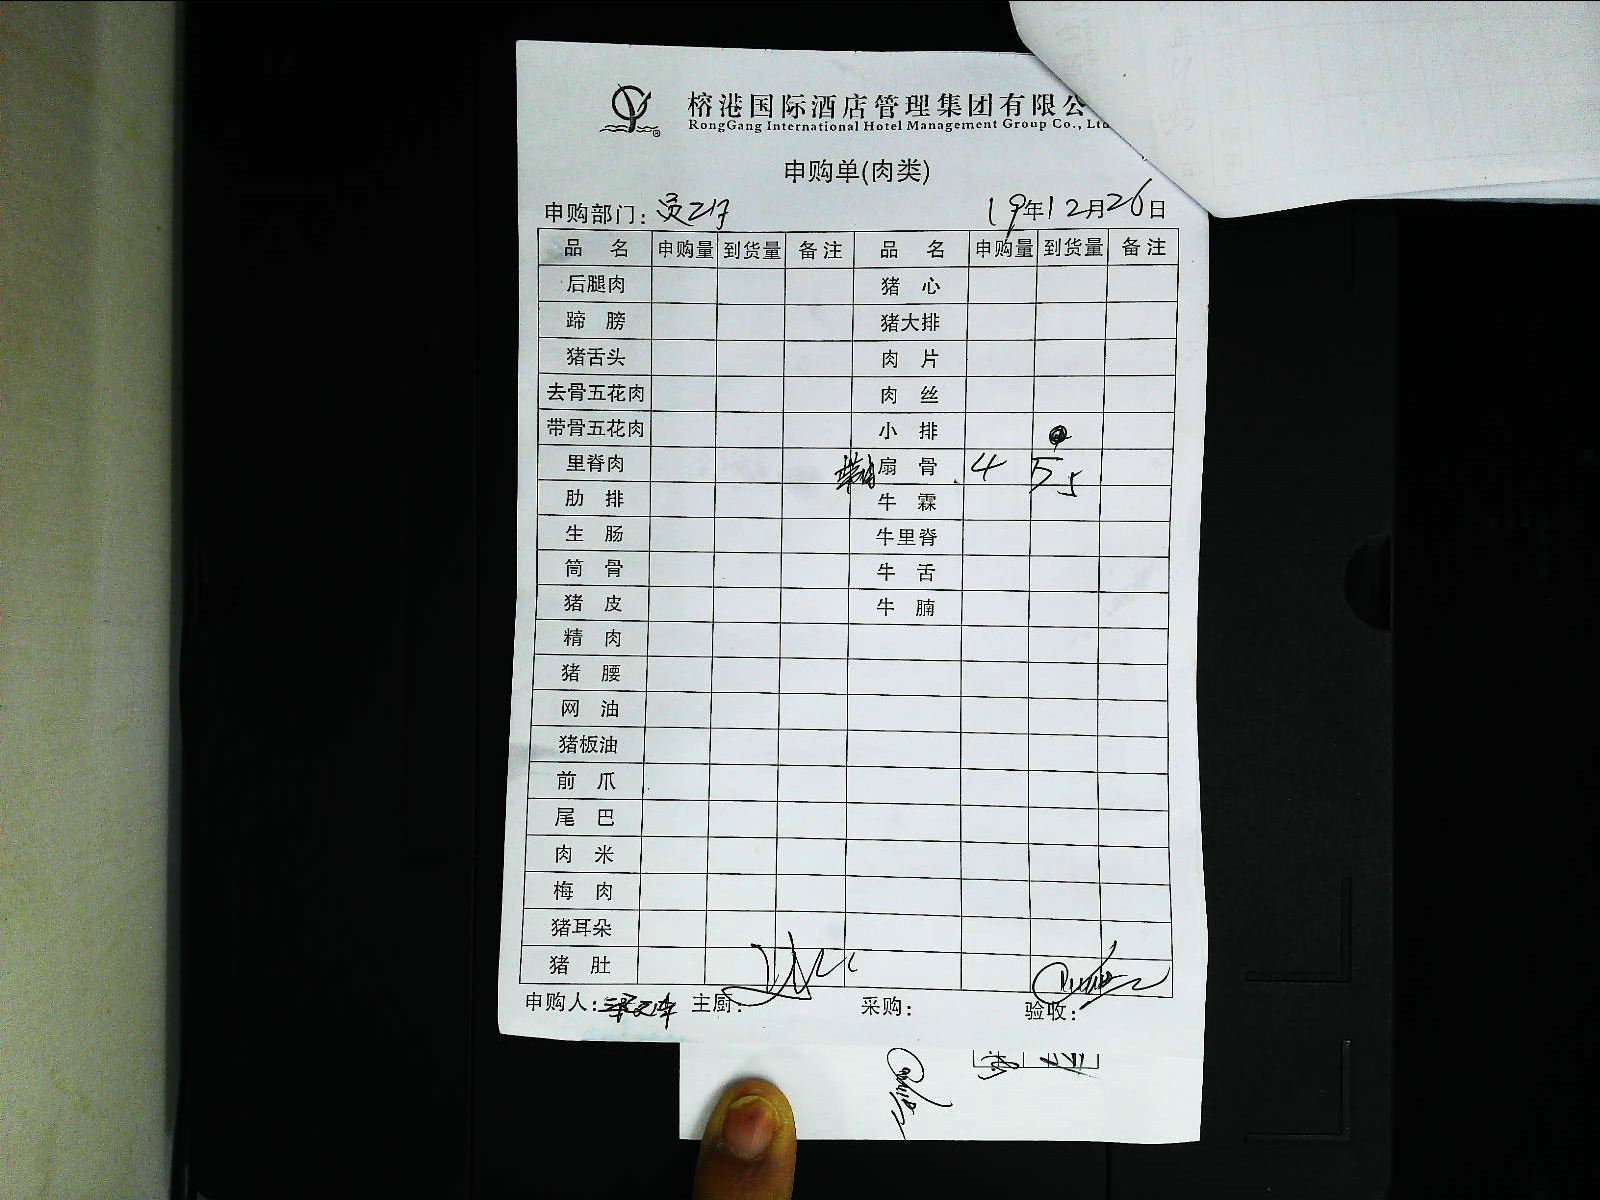 榕港国际酒店管理集团有限公
RongGang International Hotel Management Group Co., Ltd
申购单(肉类)
申购部门: 19年12月26日
品 名 申购量 到货量 备注 品 名 申购量 到货量 备注
后腿肉 猪 心
蹄 膀 猪大排
猪舌头 肉 片
去骨五花肉 肉 丝
带骨五花肉 小 排
里脊肉 扇 骨 4
肋 排 牛 霖
生 肠 牛里脊
筒 骨 牛 舌
猪 皮 牛 腩
精 肉
猪 腰
网 油
猪板油
前 爪
尾 巴
肉 米
梅 肉
猪耳朵
猪 肚
申购人: 主厨: 采购: 验收: